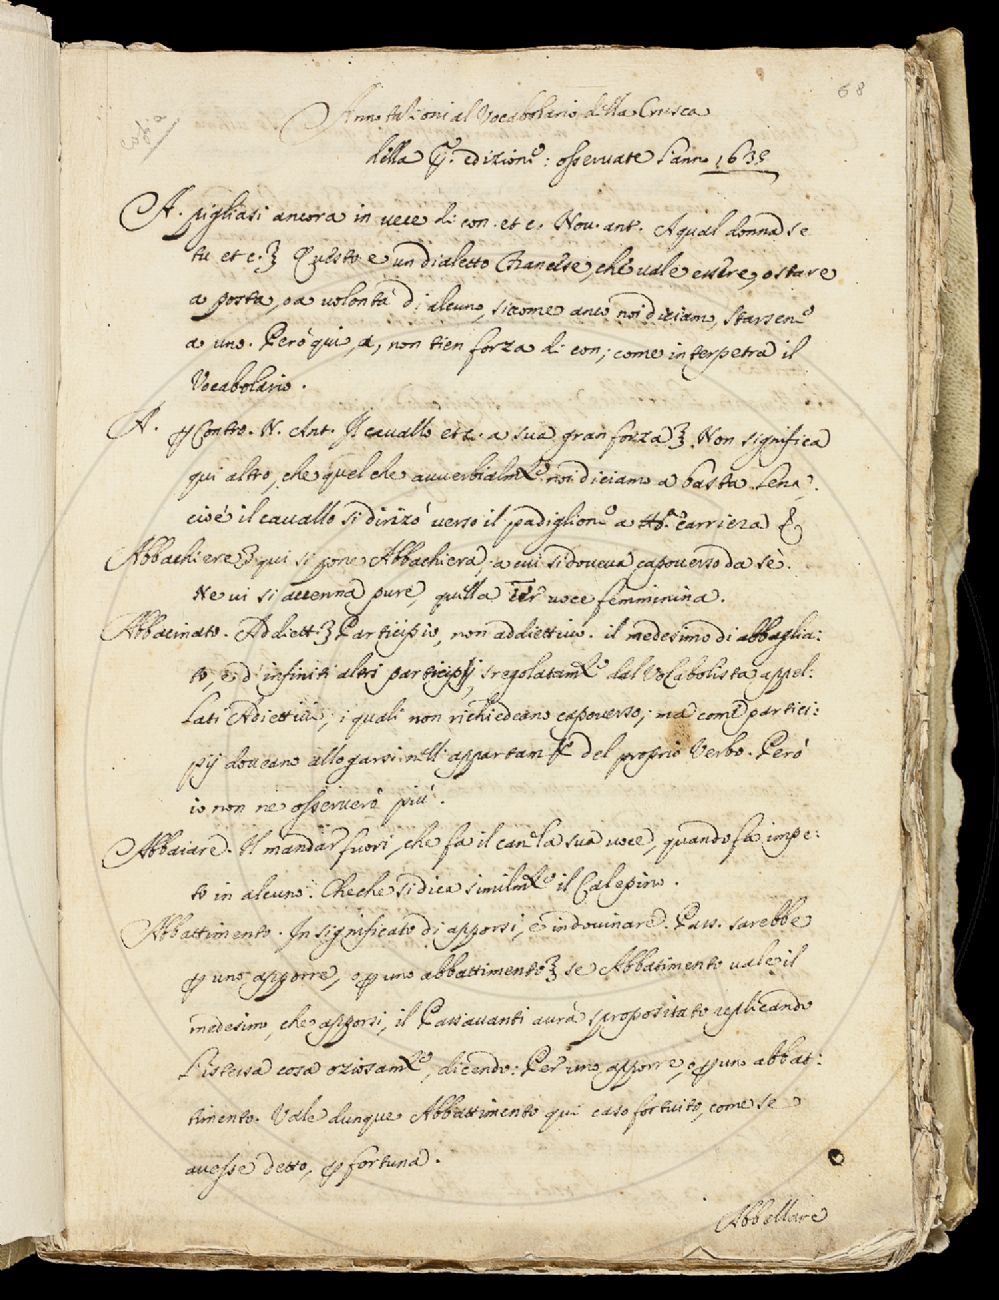 68
Copia
Annotazioni al Vocabolario della Crusca
della ijª. edizione: osseruate l'anno 1635
A. pigliasi ancora in uece di con. et c. Nou. ant. A qual donna se
tu et c.} Questo e un dialetto Francese, che uale essere, o stare
a posta, o a uolontà di alcuno, sicome anco noi diciamo, starsene
a uno. Però qui, a, non tien forza di con; come interpetra il
Vocabolario.
A. p Contro. N. Ant. Il cauallo etc. a sua gran forza}. Non significa
qui altro, che quel che auuerbialmte. noi diciamo a basta lena,
cioè il cauallo si dirizò uerso il padiglione a tta. carriera
Abbachiere} qui si pone Abbachiera, a cui si doueua capouerso da sè.
Ne ui si accenna pure, quella esser uoce femminina.
Abbacinato. Addiett.} Participio, non addiettiuo. il medesimo di abbaglia:
to, e d'infiniti altri participij sregolatamte. dal Vocabolista appel:
lati Adiettiui; i quali non richiedeano capouerso; ma come partici:
pij doueano allogarsi nell' appartamto del proprio Verbo. Però
io non ne osseruerò più.
Abbaiare. Il mandar fuori, che fa il cane la sua uoce, quando fa impe:
to in alcuno. Che che si dica similmte. il Calepino.
Abbattimento. In significato di apporsi, e indouinare. Pass. sarebbe
p uno apporre, e p uno abbattimento} se Abbatimento uale il
medesimo, che apporsi, il Passauanti aurà spropositato replicando
l'istessa cosa oziosamte, dicendo: Per uno apporre, e p uno abbat:
timento. Vale dunque Abbattimento qui caso fortuito, come se
auesse detto, p fortuna.
Abbellare